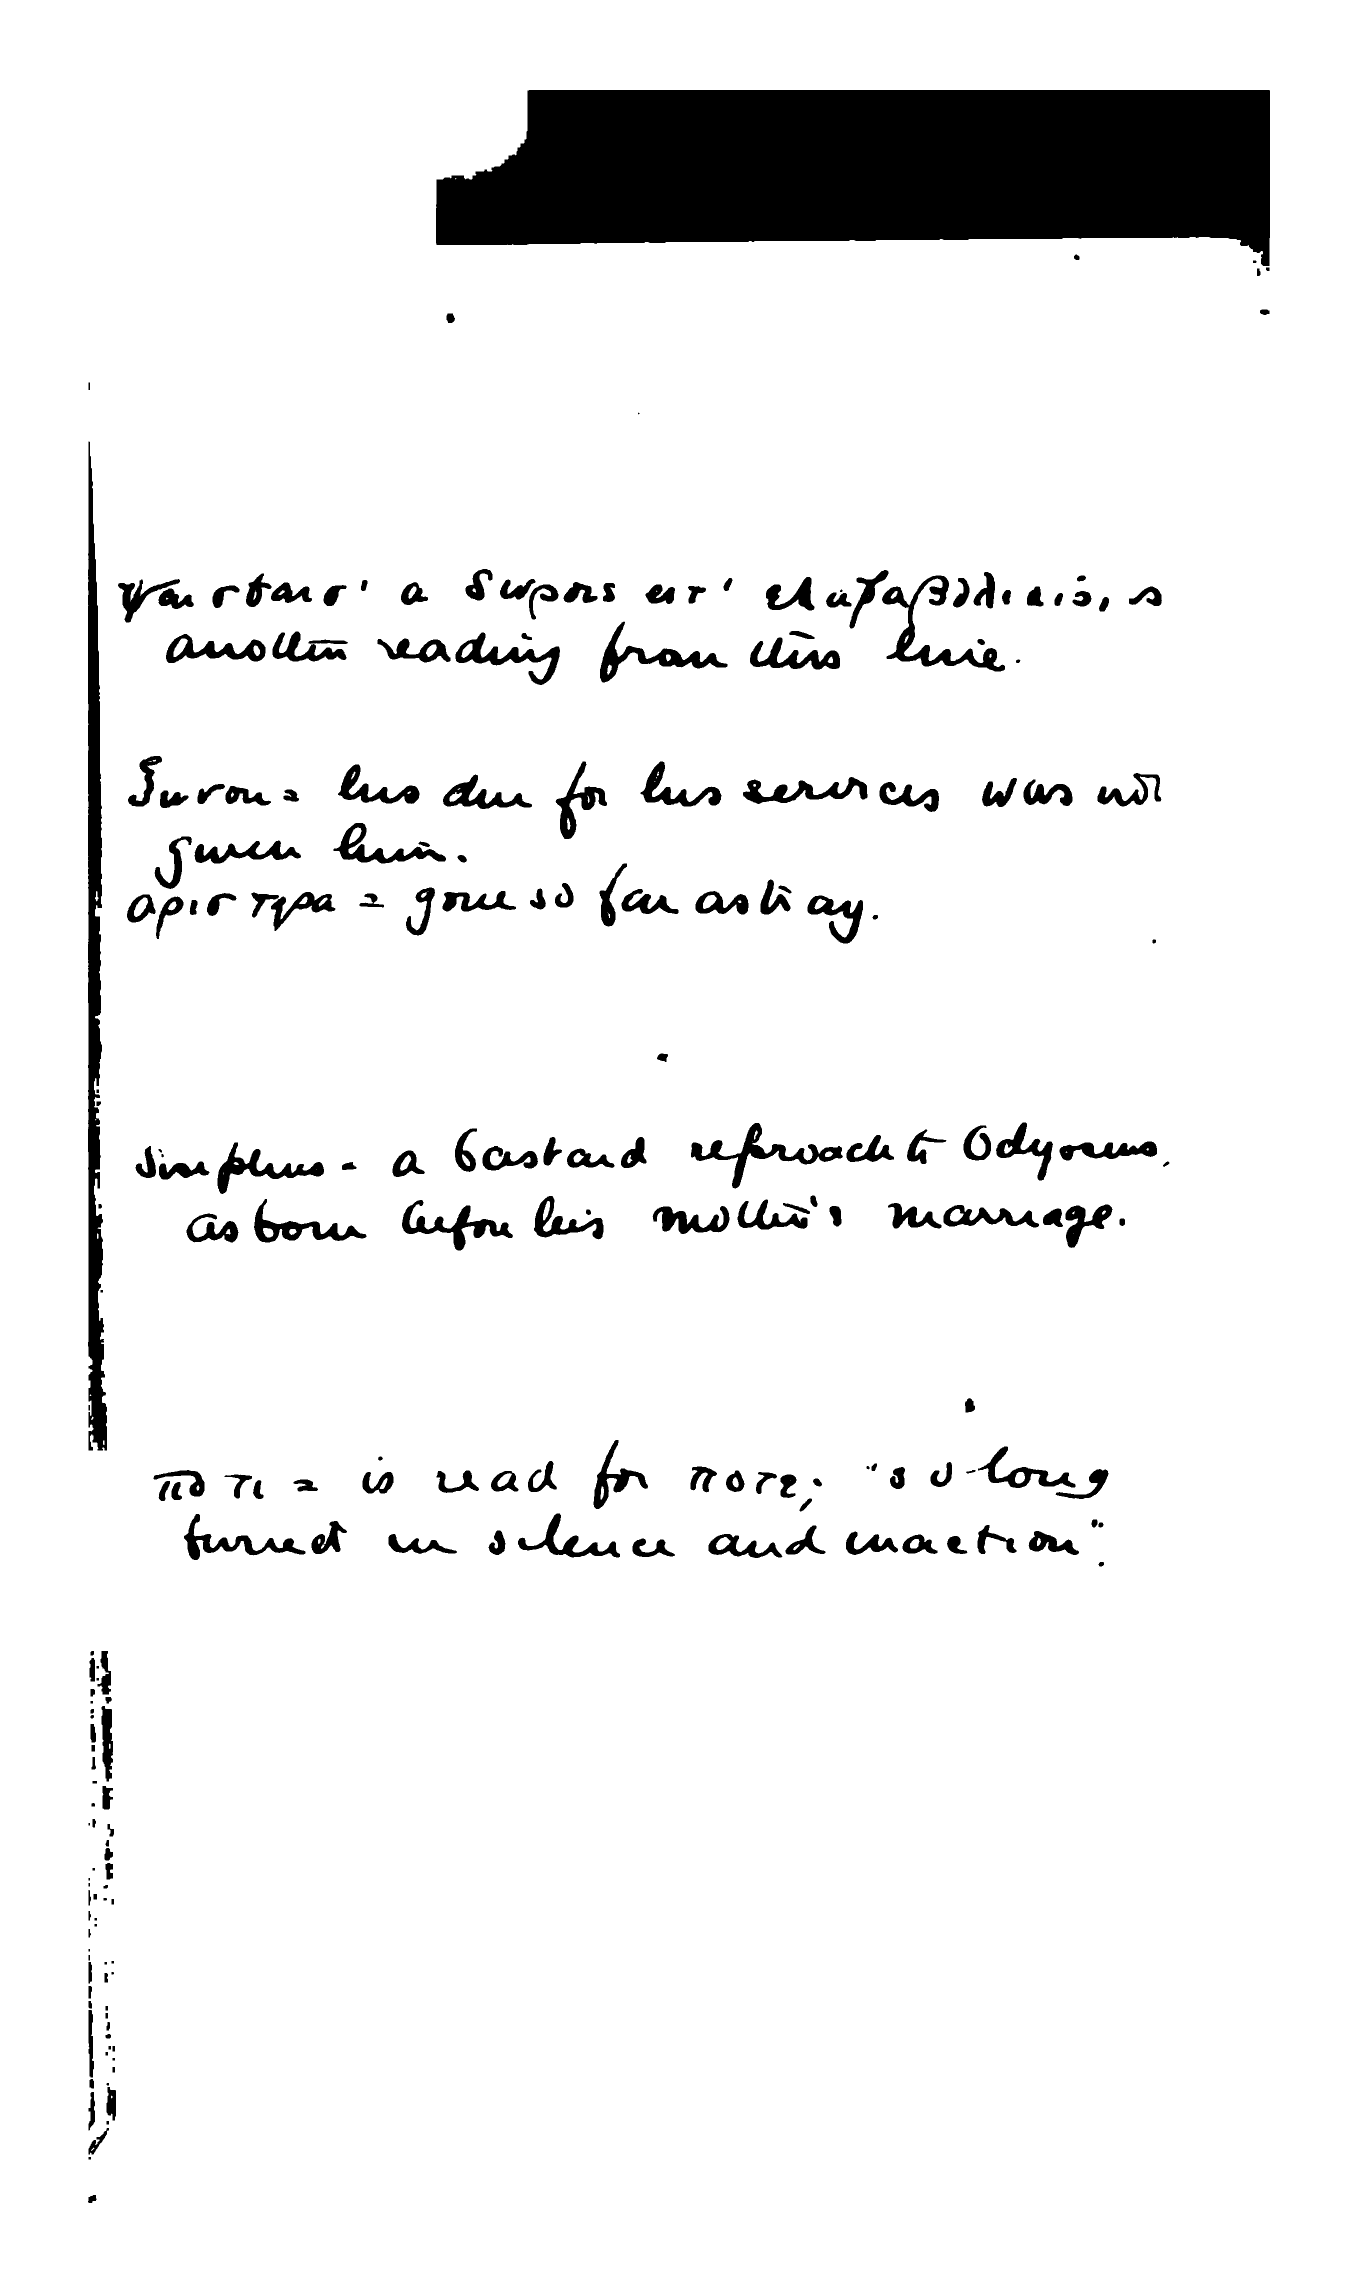 a δωροις ειτ' ελαφαβολιαις, is
another reading from this line.
ξυνον = his due for his services was not
given him.
αριστερα = gone so far astray.
Sisyphus - a bastard reproach to Odysseus,
as born before his mother's marriage.
ποτι = is read for ποτε; "so long
turned in silence and inaction".